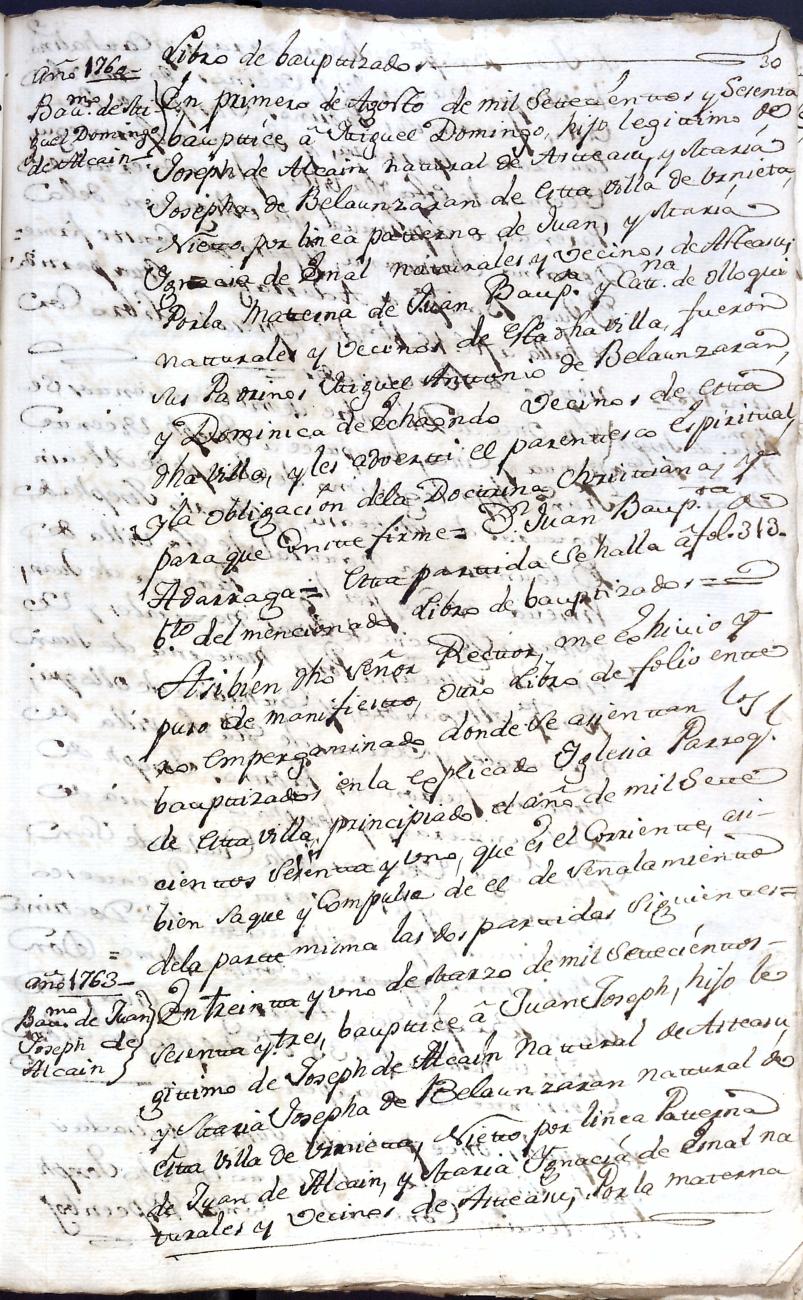 Libro de bauptizados
30
año 1760
Bau.mo de Mi
guel Domingo
de Alcain
En primero de Agosto de mil Setecientos y Sesenta
bauptice, â Miguel Domingo, hijo legitimo de
Joseph de Alcain natural de Asteasu, y Maria
Josepha de Belaunzaran de esta villa de Urnieta,
Nieto por linea paterna de Juan, y Maria
Ignacia de Einal naturales y vecinos de Asteasu,
Por la Materna de Juan Baup.ta y Catt.na de Olloqui
naturales y vecinos de esta dha villa, fueron
sus Padrinos Miguel Antonio de Belaunzaran,
y Dominica de Echaondo vecinos de esta
dha villa, y les adverti el parentesco espiritual,
y la obligación dela Doctrina Christiana, y
para que conste firme = Dn Juan Baup.ta de
Adarraga = Esta partida se halla â fol. 313.
b.to del mencionado Libro de bauptizados =
Asibien dho Señor Rector, me exhivio y
puso de manifiesto, otro Libro de folio ente
ro empergaminado donde se asientan los
bauptizados en la explicada Yglesia Parroq.l
de esta villa, principiado el año de mil Sete
cientos Sesenta y uno, que es el Corriente, asi-
bien saque y Compulse de el de Señalamiento
dela parte misma las dos partidas siguientes =
año 1763
Bau.mo de Juan
Joseph de
Alcain
En treinta y uno de Marzo de mil Setecientos
sesenta y tres, bauptice â Juan Joseph, hijo le
gitimo de Joseph de Alcain Natural de Asteasu
y Maria Josepha de Belaunzaran natural de
esta villa de Urnieta, Nieto por linea Paterna
de Juan de Alcain, y Maria Ignacia de Einal na
turales y vecinos de Asteasu, Por la materna